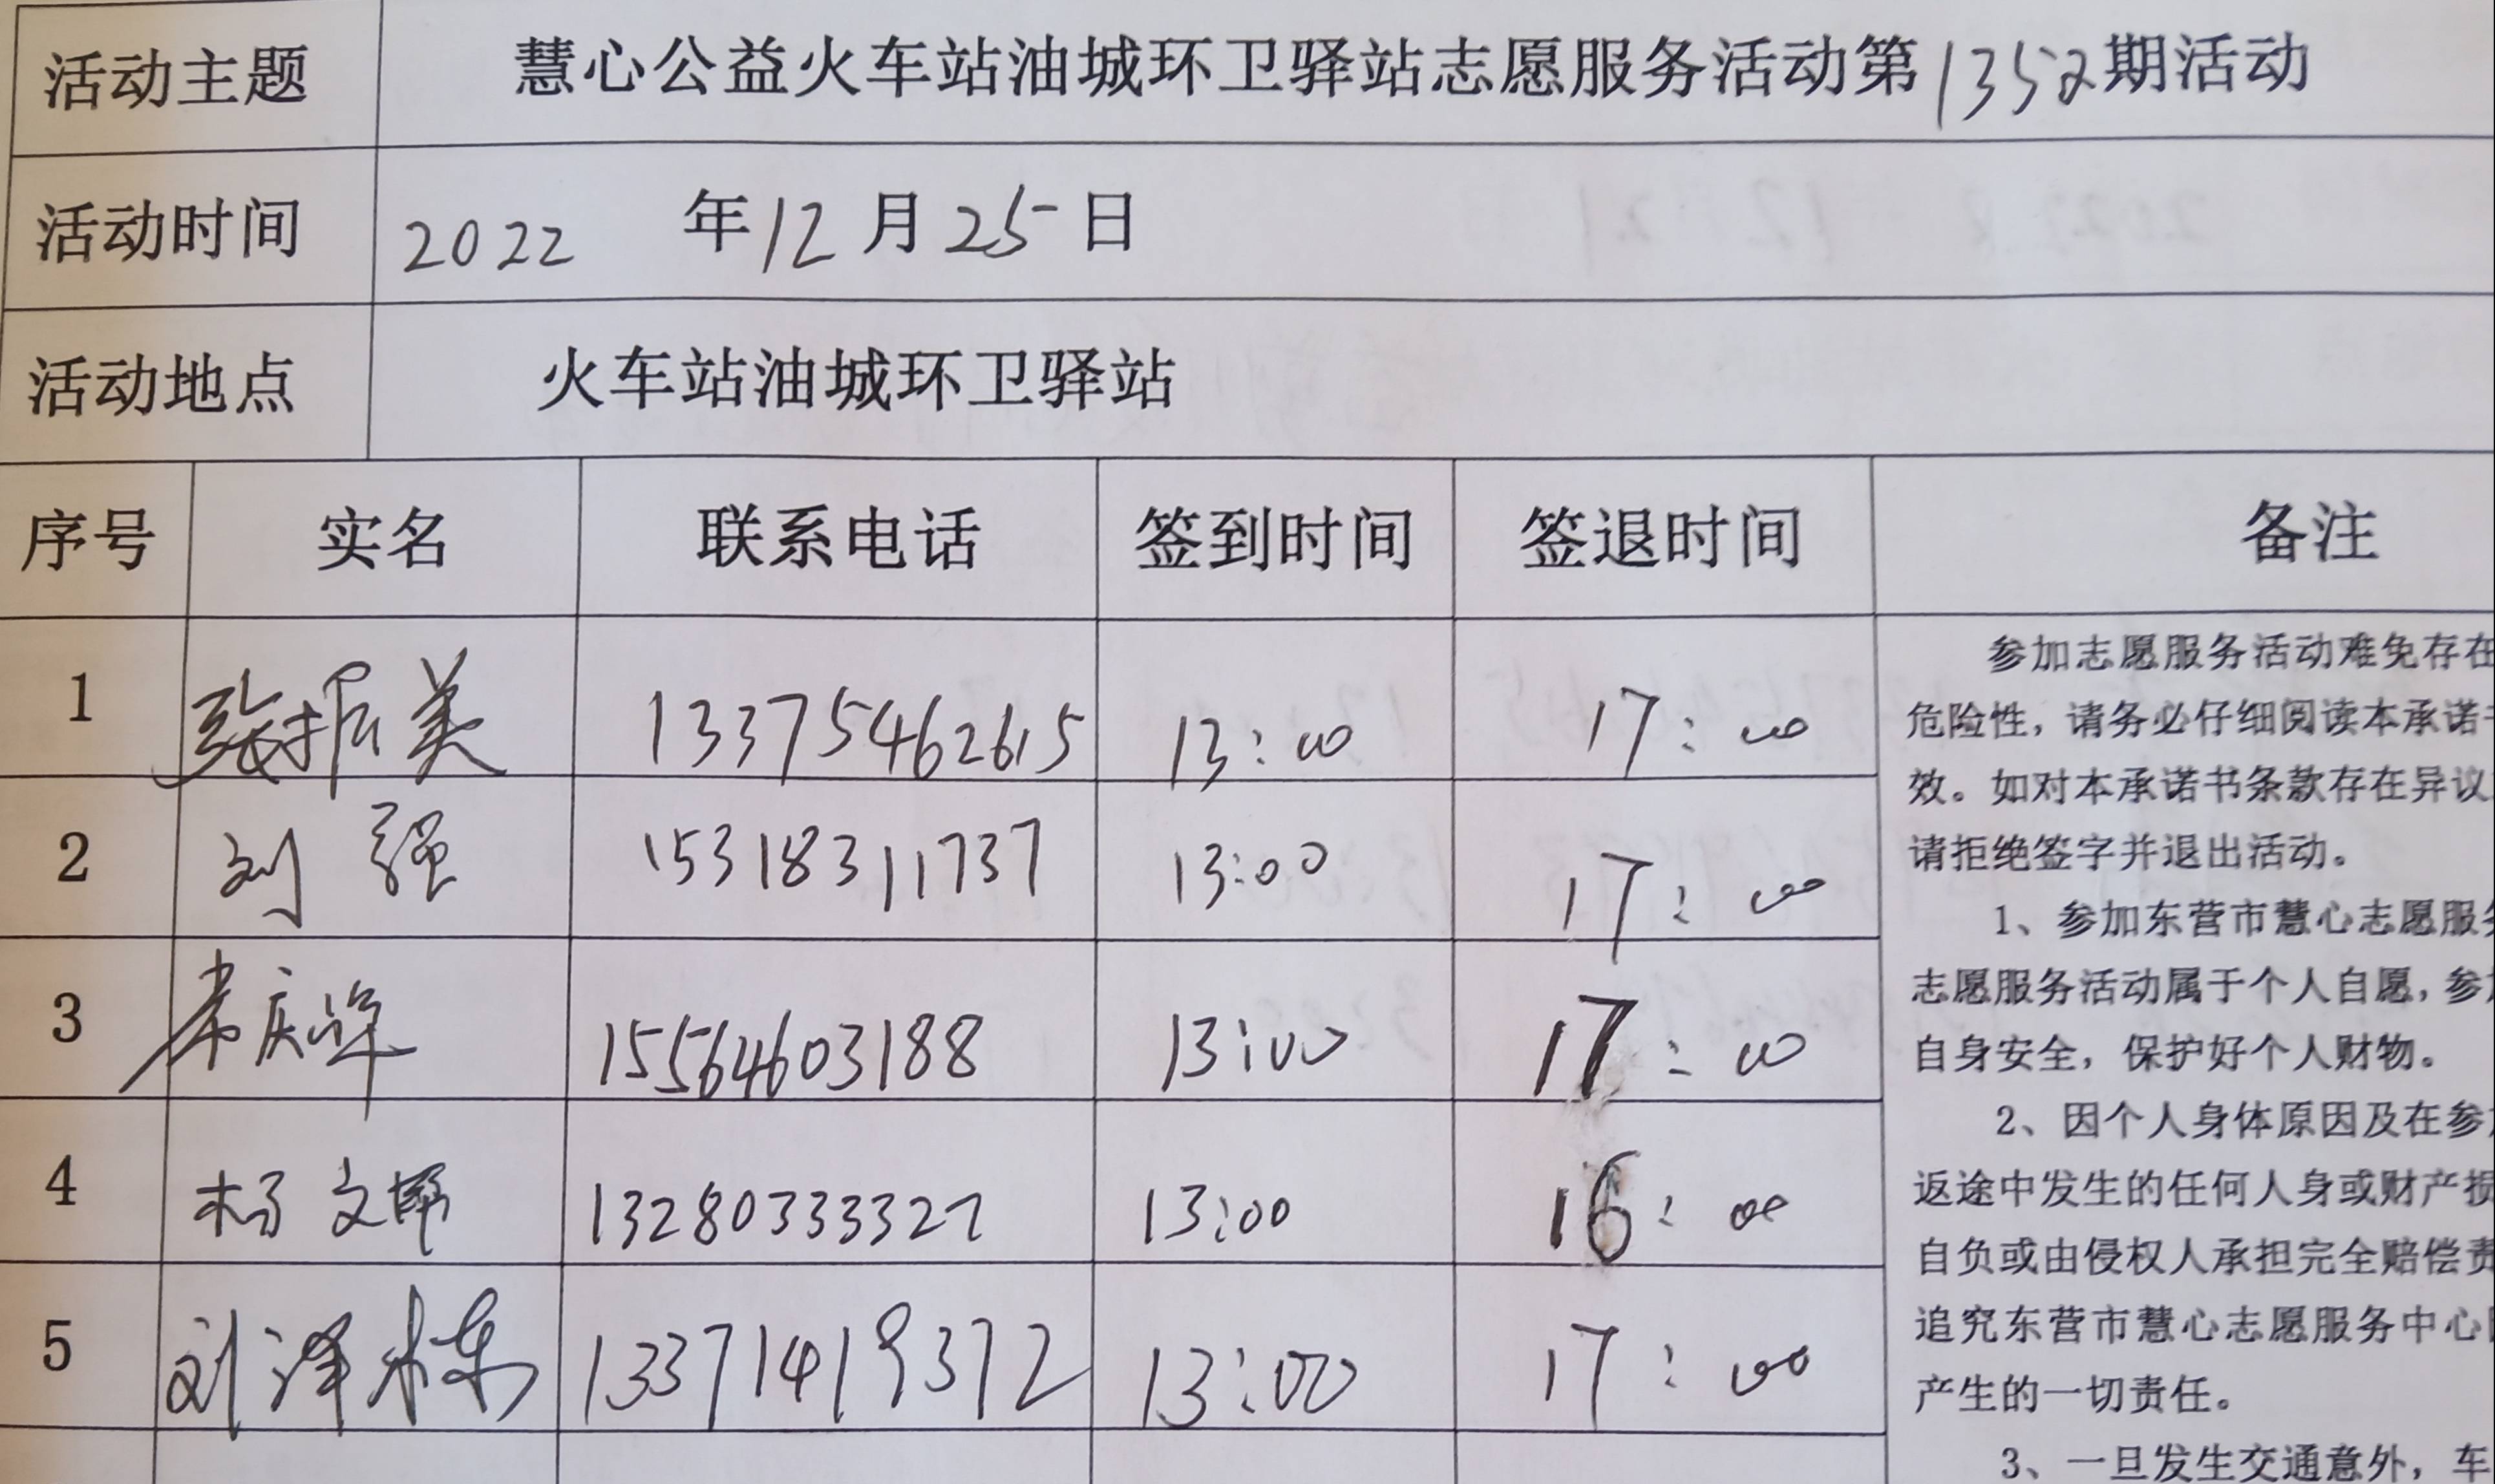 活动主题 慧心公益火车站油城环卫驿站志愿服务活动第1352期活动
活动时间 2022 年12月25日
活动地点 火车站油城环卫驿站
序号 实名 联系电话 签到时间 签退时间 备注
1 张振美 13375462615 13:00 17:00
2 刘强 15318311737 13:00 17:00
3 15564603188 13:00 17:00
4 杨文 13280333327 13:00 16:00
5 刘泽栋 13371419372 13:00 17:00
参加志愿服务活动难免存在
危险性，请务必仔细阅读本承诺书
效。如对本承诺书条款存在异议
请拒绝签字并退出活动。
1、参加东营市慧心志愿服务
志愿服务活动属于个人自愿，参加
自身安全，保护好个人财物。
2、因个人身体原因及在参加
返途中发生的任何人身或财产损
自负或由侵权人承担完全赔偿责
追究东营市慧心志愿服务中心
产生的一切责任。
3、一旦发生交通意外，车